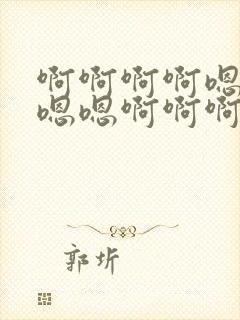 啊啊啊啊嗯
嗯嗯啊啊啊
郭圻